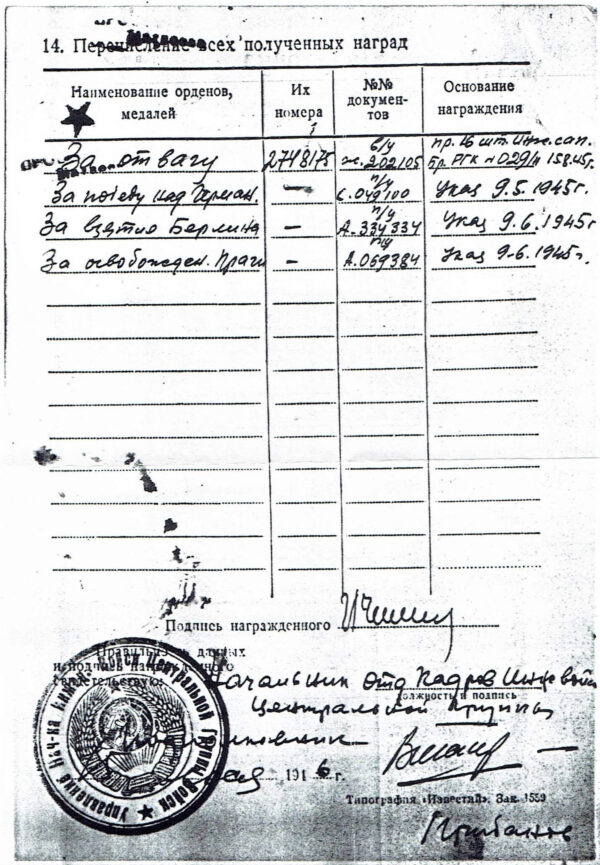 14. Перечисление всех полученных наград
Наименование орденов, медалей
Их номера
№№ документов
Основание награждения
За отвагу 2748175 в/у ж.202105 пр. 16 шт. Инж. сап. бр. РГК №029/н 15.8.45г.
За победу над Герман. — п/у С.049100 Указ 9.5.1945г.
За взятие Берлина — п/у А.334334 Указ 9.6.1945г.
За освобожден. Праги — п/у А.069384 Указ 9.6.1945г.
Подпись награжденного
Правильность данных
и подпись награжденного
свидетельствую: Начальник отд Кадров Инж войск
должность и подпись
Центральной Группы
1946 г.
Типография «Известий». Зак. 1559
Управление Нач-ка Инж. Войск Центральной Группы Войск